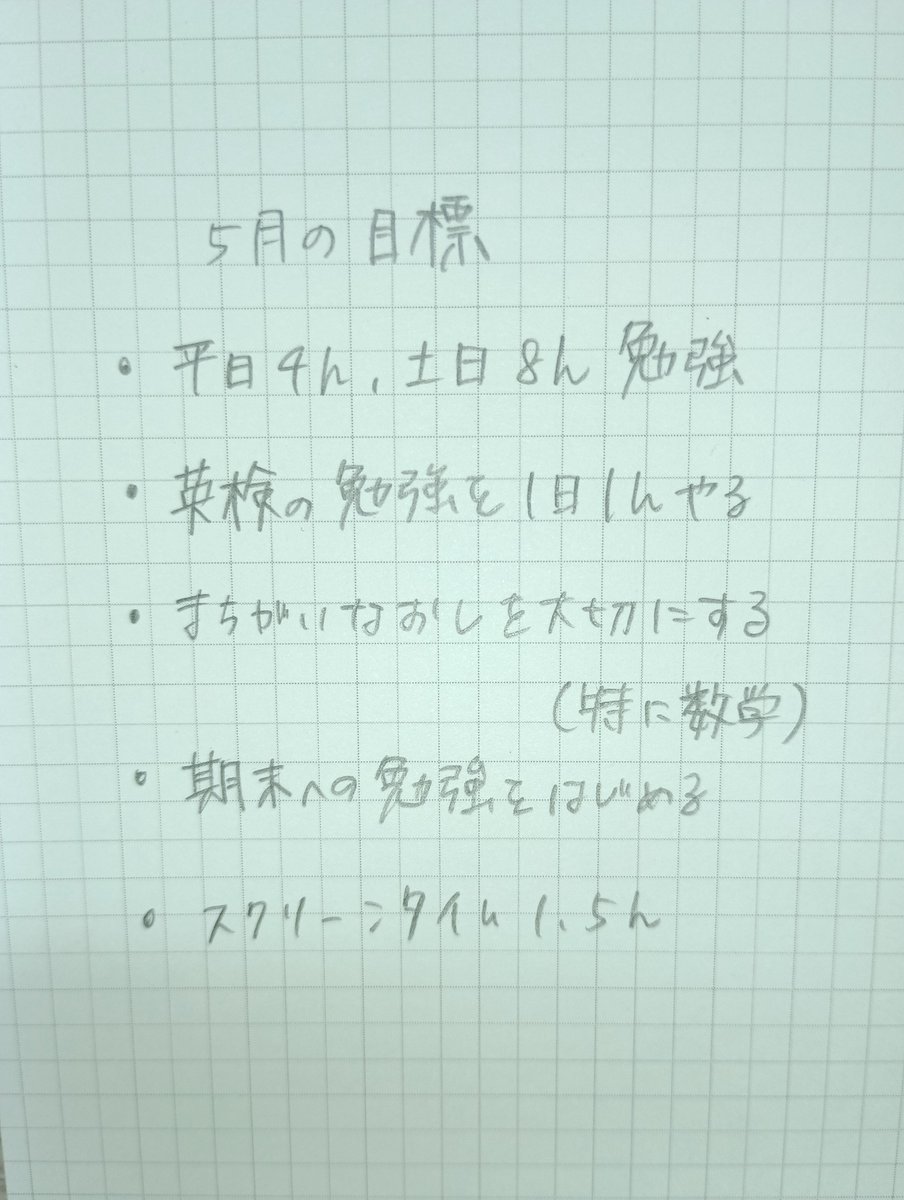 5月の目標
・平日4h、土日8h 勉強
・英検の勉強を1日1hやる
・まちがいなおしを大切にする
(特に数学)
・期末への勉強をはじめる
・スクリーンタイム 1.5h